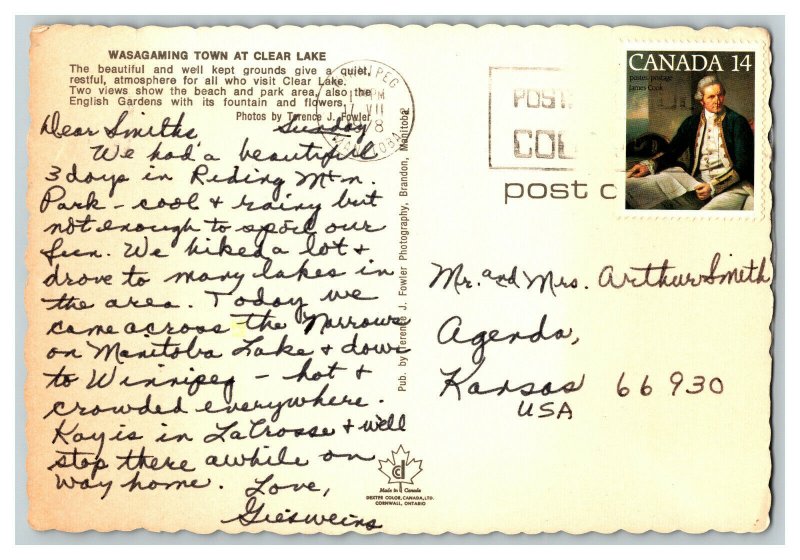 WASAGAMING TOWN AT CLEAR LAKE
The beautiful and well kept grounds give a quiet,
restful, atmosphere for all who visit Clear Lake.
Two views show the beach and park area, also the
English Gardens with its fountain and flowers.
Photos by Terence J. Fowler
Dear Smiths, Sunday
We had a beautiful
3 days in Riding Mtn.
Park - cool & rainy but
not enough to spoil our
fun. We hiked a lot &
drove to many lakes in
the area. Today we
came across the Narrows
on Manitoba Lake & down
to Winnipeg - hot &
crowded everywhere.
Kay is in LaCrosse & will
stop there awhile on
way home. Love,
Giesweins
Pub. by Terence J. Fowler Photography, Brandon, Manitoba
Made in Canada
DEXTER COLOR, CANADA, LTD.
CORNWALL, ONTARIO
PM
VII
POST
CO
post c
CANADA 14
postes, postage
James Cook
Mr. and Mrs. Arthur Smith
Agenda,
Kansas 66930
USA